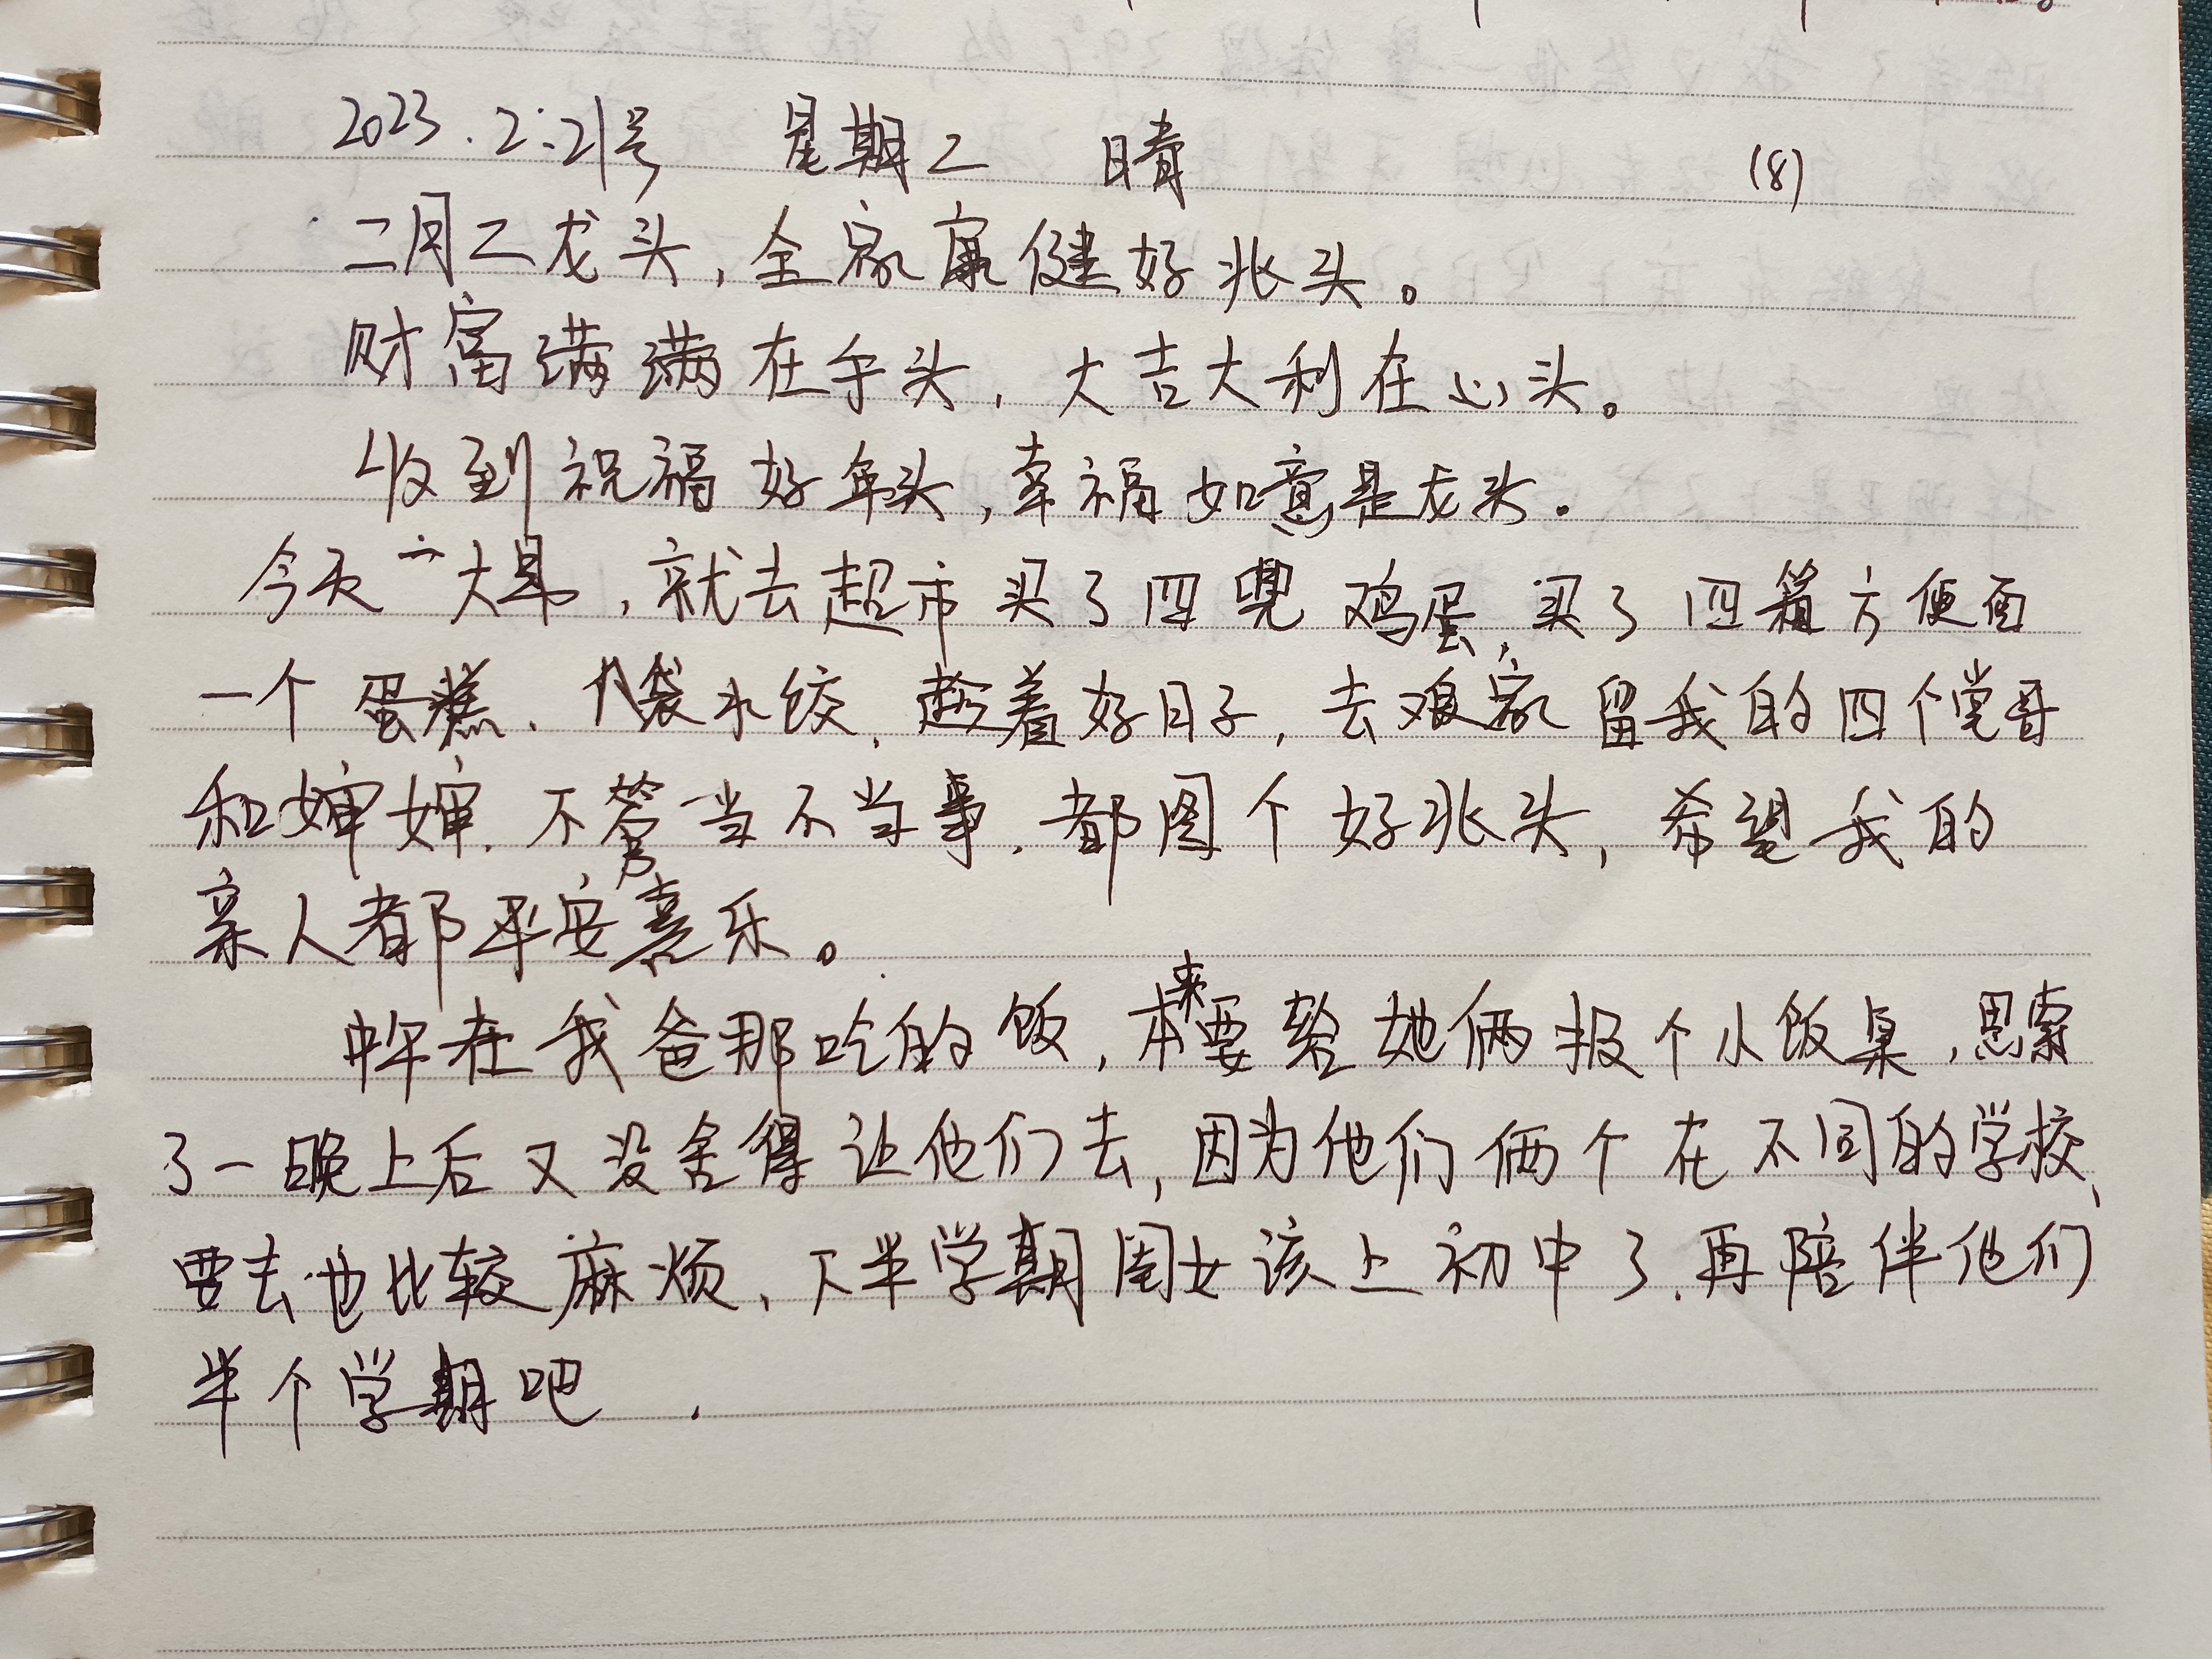 2023.2.21号 星期二 晴 (8)
二月二龙头,全家康健好兆头。
财富满满在手头,大吉大利在心头。
收到祝福好年头,幸福如意是龙头.
今天一大早,就去超市买了四兜鸡蛋,买了四箱方便面
一个蛋糕、八袋水饺,趁着好日子,去娘家留我的四个堂哥
和婶婶.不管当不当事.都图个好兆头,希望我的
亲人都平安喜乐。
中午在我爸那吃的饭,本来要给她俩报个小饭桌,思索
了一晚上后又没舍得让他们去,因为他们俩个在不同的学校,
要去也比较麻烦、下半学期闺女该上初中了.再陪伴他们
半个学期吧.